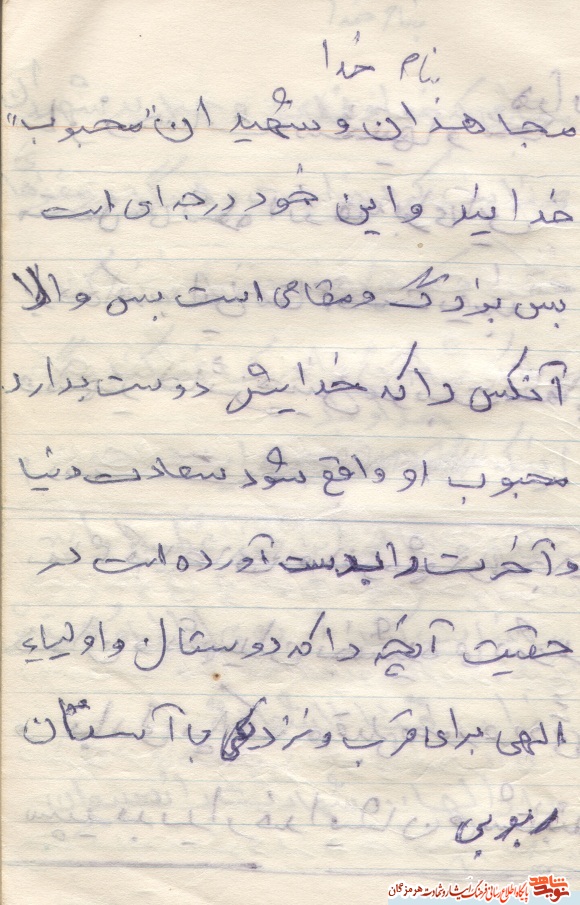 بنام خدا
مجاهدان و شهیدان "محبوب"
خدایند و این خود درجه ای است
بس بزرگ و مقامی است بس والا
آنکس را که خدایش دوست بدارد
محبوب او واقع شود سعادت دنیا
و آخرت را بدست آورده است در
حقیت آنچه را که دوستان و اولیاء
الهی برای قرب و نزدیکی با آستان
ربوبی
نوید شاهد
پایگاه اطلاع رسانی فرهنگ ایثار و شهادت هرمزگان